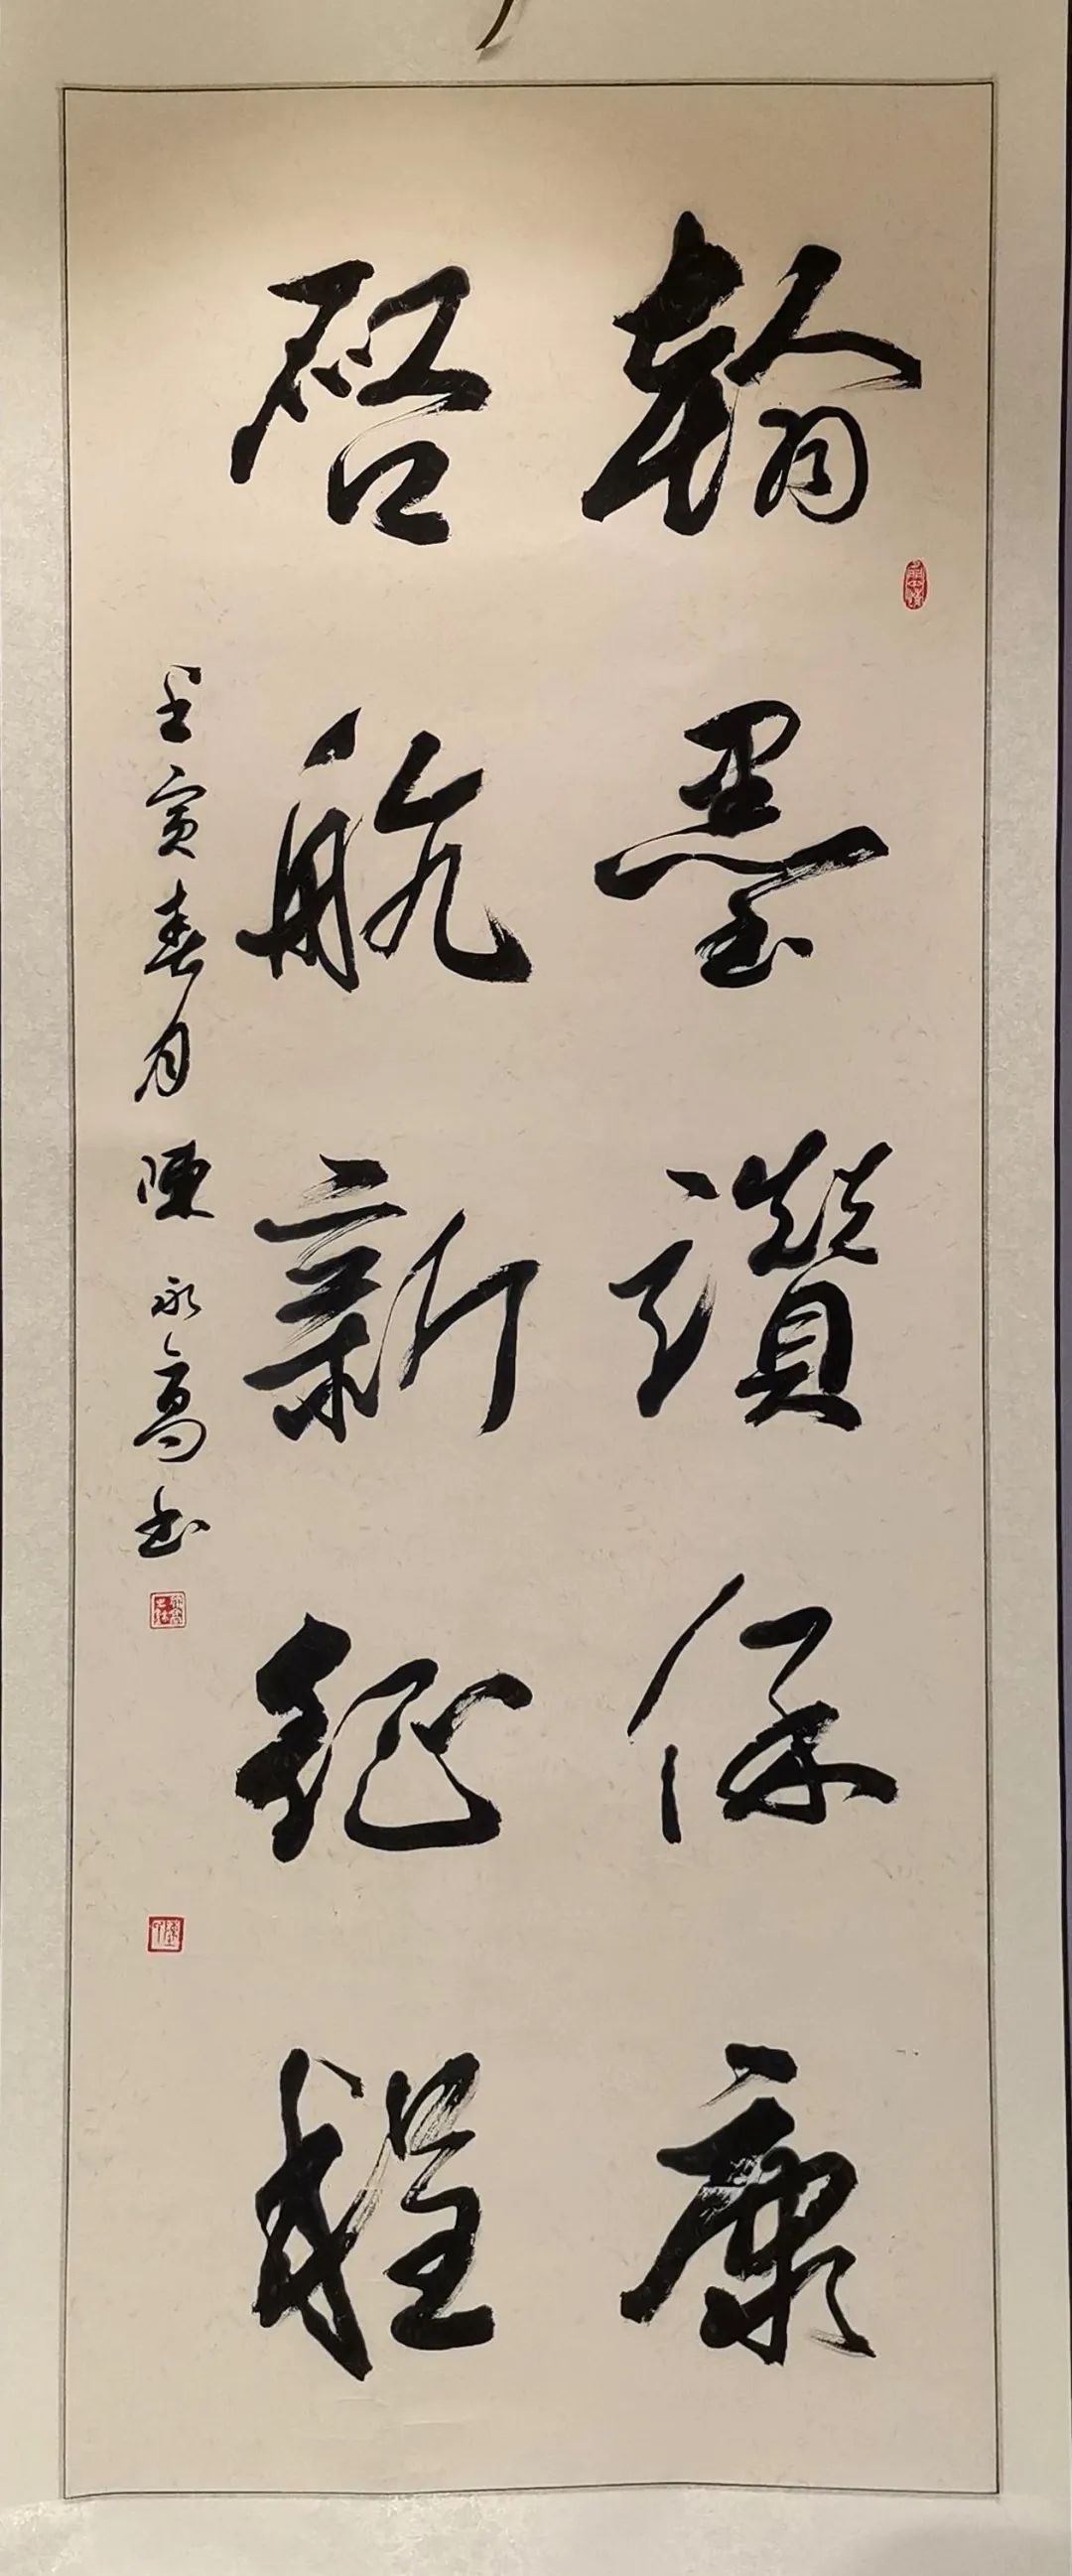 翰墨讃保康
啓航新征程
壬寅春月陳永高书